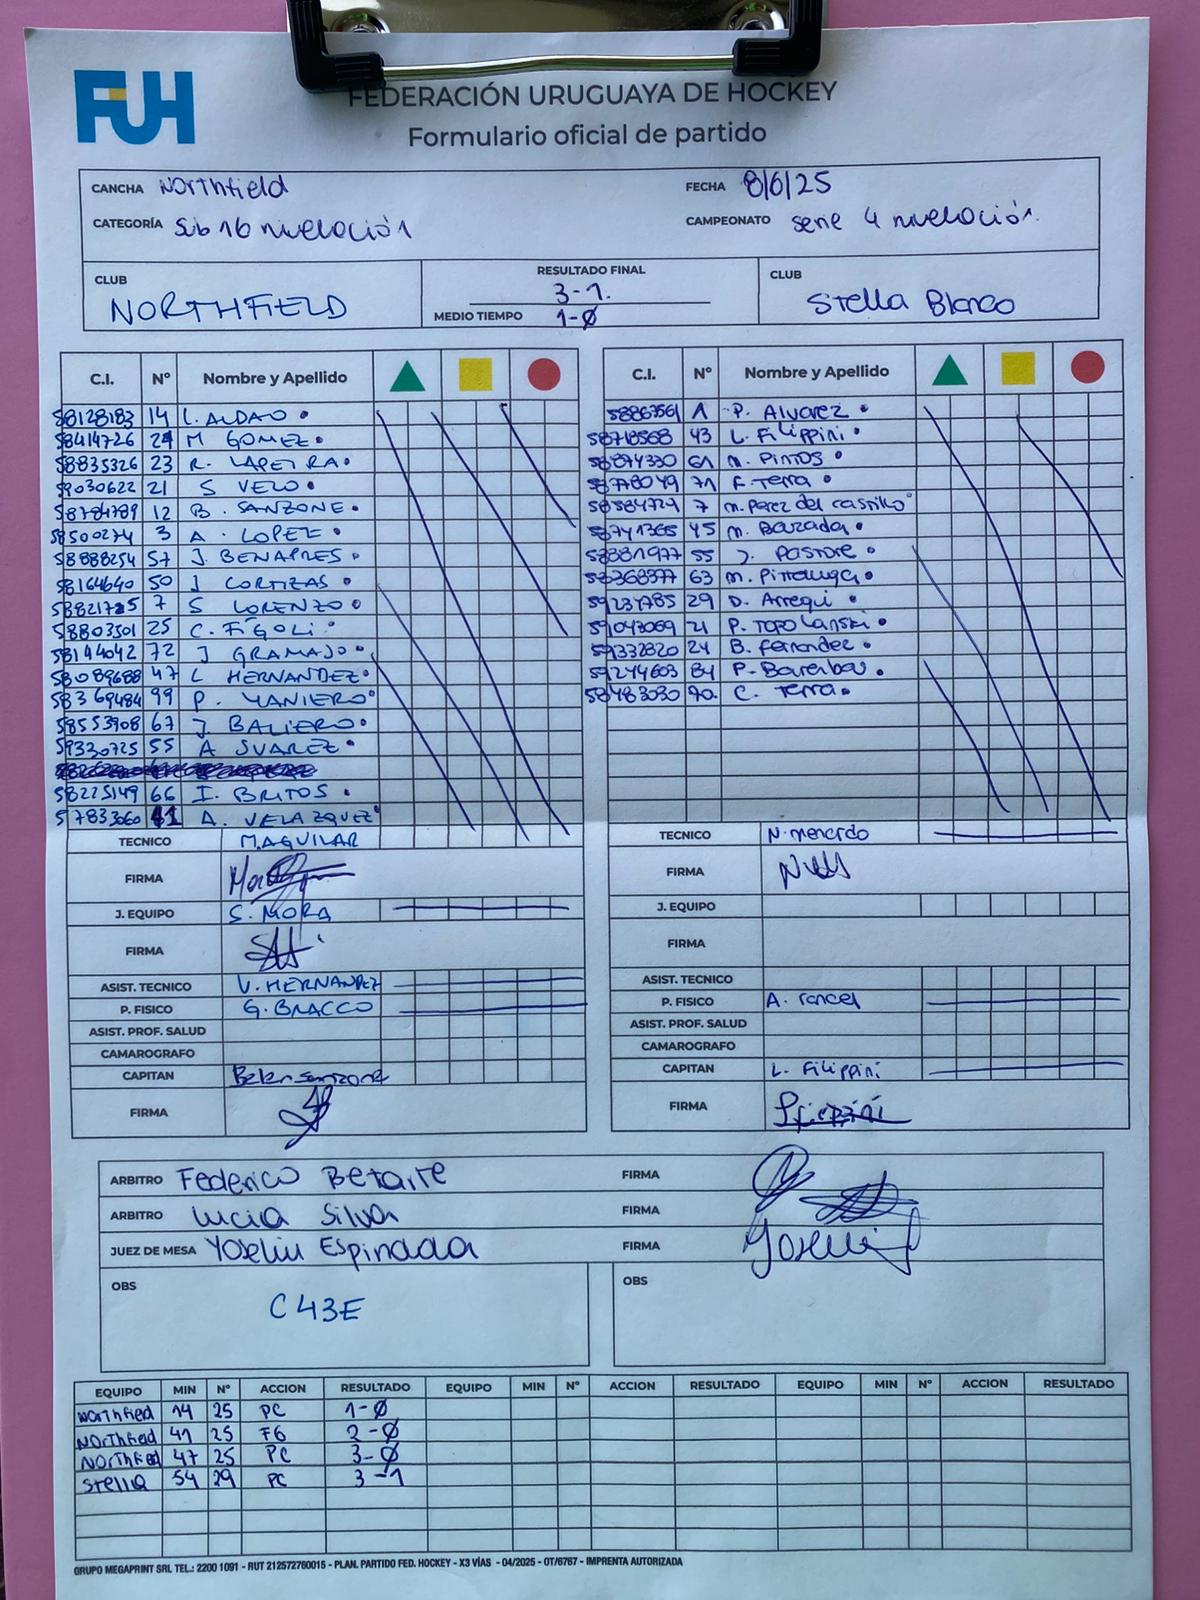 FUH
FEDERACIÓN URUGUAYA DE HOCKEY
Formulario oficial de partido
CANCHA Northfield FECHA 8/6/25
CATEGORÍA Sub 16 nivelación CAMPEONATO serie 4 nivelación.
CLUB NORTHFIELD
RESULTADO FINAL 3-1.
MEDIO TIEMPO 1-Ø
CLUB Stella Blanco
C.I. Nº Nombre y Apellido
58128183 14 L. ALDAO
58414726 24 M GOMEZ
58835326 23 R. LAPEIRA
59030622 21 S VELO
58784789 12 B. SANZONE
58500274 3 A. LOPEZ
58888254 57 J. BENAPRES
58164640 50 J CORTIZAS
58821725 7 S LORENZO
58803501 25 C. FIGOLI
58144042 72 J GRAMAJO
58089688 47 L HERNANDEZ
58369484 99 P. YANIERO
58553908 67 J. BALIERO
59330725 55 A SUAREZ
58225149 66 I. BRITOS
57833060 11 A. VELAZQUEZ
TECNICO M.AGUILAR
FIRMA
J. EQUIPO S. MORA
FIRMA
ASIST. TECNICO V. HERNANDEZ
P. FISICO G. BRACCO
ASIST. PROF. SALUD
CAMAROGRAFO
CAPITAN Belen Sanzone
FIRMA
C.I. Nº Nombre y Apellido
58863561 1 P. Alvarez
58718568 43 L. Filippini
58874330 61 M. Pintos
58778049 71 F. Terra
58584729 7 M. Perez del castillo
58741365 45 M. Bauzada
58881977 55 J. Pastore
58368377 63 M. Pittaluga
59234785 29 D. Arregui
59043069 21 P. Topolanski
59332820 24 B. Fernandez
59244603 84 P. Barreiba
58483030 70 C. Terra
TECNICO N. mercado
FIRMA
J. EQUIPO
FIRMA
ASIST. TECNICO
P. FISICO A. rancel
ASIST. PROF. SALUD
CAMAROGRAFO
CAPITAN L. Filippini
FIRMA
ARBITRO Federico Betarte FIRMA
ARBITRO Lucia Silva FIRMA
JUEZ DE MESA Yoseliu Espinada FIRMA
OBS C43E
OBS
EQUIPO MIN Nº ACCION RESULTADO EQUIPO MIN Nº ACCION RESULTADO EQUIPO MIN Nº ACCION RESULTADO
Northfied 14 25 PC 1-Ø
Northfied 41 25 FG 2-Ø
Northfied 47 25 PC 3-Ø
Stella 54 29 PC 3-1
GRUPO MEGAPRINT SRL TEL.: 2200 1091 - RUT 212572760015 - PLAN. PARTIDO FED. HOCKEY - X3 VÍAS - 04/2025 - OT/6767 - IMPRENTA AUTORIZADA